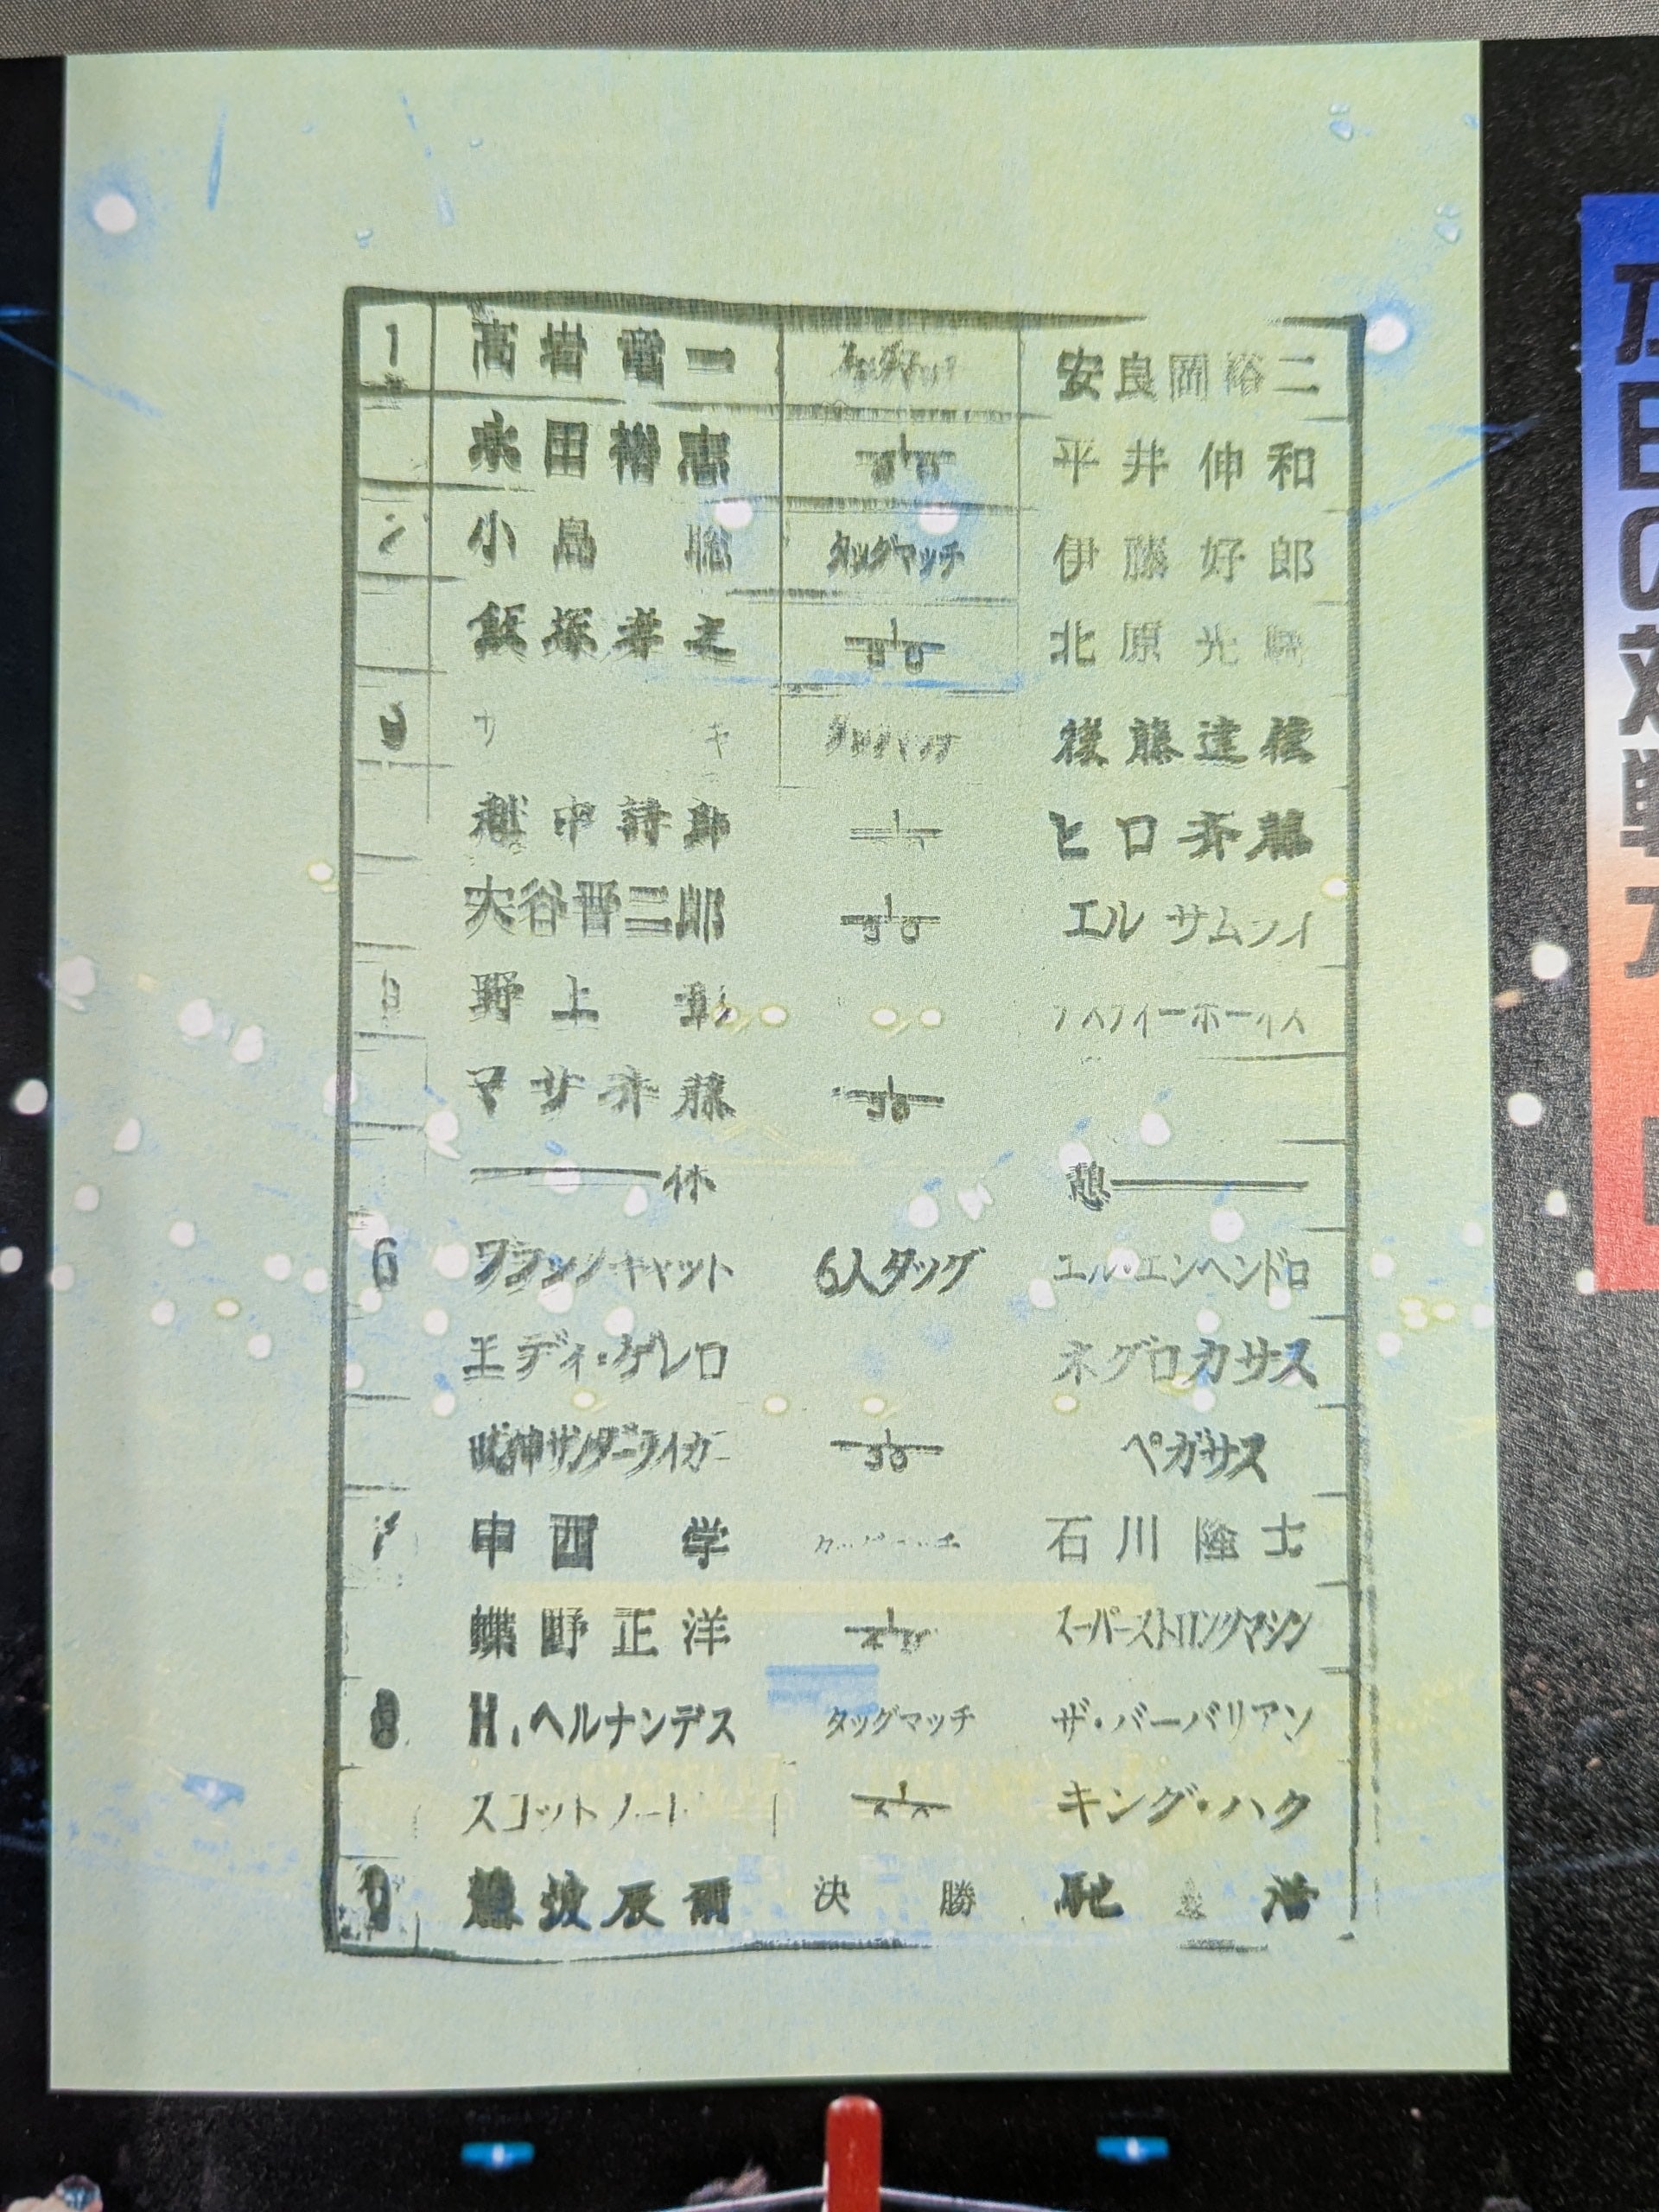 1 高岩竜一 タッグマッチ 安良岡裕二
永田裕志 平井伸和
2 小島聡 タッグマッチ 伊藤好郎
飯塚孝之 北原光騎
サ キ タッグマッチ 後藤達俊
越中詩郎 ヒロ斉藤
大谷晋二郎 エル サムライ
野上彰
マサ斉藤
休憩
6 ブラックキャット 6人タッグ
エディ・ゲレロ ネグロカサス
獣神サンダーライガー ペガサス
7 中西学 タッグマッチ 石川隆士
蝶野正洋 スーパーストロングマシン
8 H.ヘルナンデス タッグマッチ ザ・バーバリアン
スコットノートン キング・ハク
9 藤波辰爾 決勝 馳浩